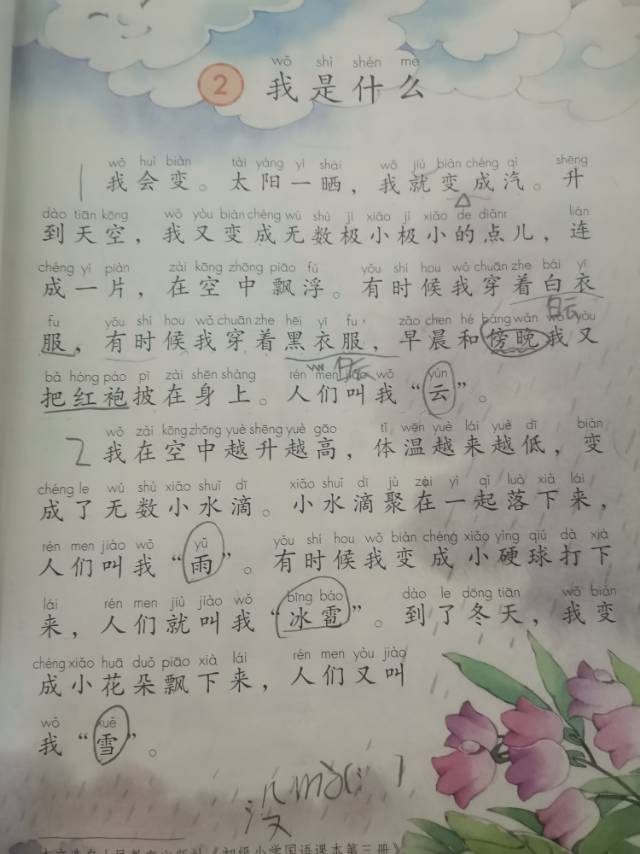 wǒ shì shén me
2 我是什么
wǒ huì biàn tài yáng yí shài wǒ jiù biàn chéng qì shēng
1 我会变。太阳一晒，我就变成汽。升
dào tiān kōng wǒ yòu biàn chéng wú shù jí xiǎo jí xiǎo de diǎnr lián
到天空，我又变成无数极小极小的点儿，连
chéng yí piàn zài kōng zhōng piāo fú yǒu shí hou wǒ chuān zhe bái yī
成一片，在空中飘浮。有时候我穿着白衣
白云
fu yǒu shí hou wǒ chuān zhe hēi yī fu zǎo chen hé bàng wǎn wǒ yòu
服，有时候我穿着黑衣服，早晨和傍晚我又
bǎ hóng páo pī zài shēn shàng rén men jiào wǒ yún
把红袍披在身上。人们叫我“云”。
wǒ zài kōng zhōng yuè shēng yuè gāo tǐ wēn yuè lái yuè dī biàn
2 我在空中越升越高，体温越来越低，变
chéng le wú shù xiǎo shuǐ dī xiǎo shuǐ dī jù zài yì qǐ luò xià lái
成了无数小水滴。小水滴聚在一起落下来，
rén men jiào wǒ yǔ yǒu shí hou wǒ biàn chéng xiǎo yìng qiú dǎ xià
人们叫我“雨”。有时候我变成小硬球打下
lái rén men jiù jiào wǒ bīng báo dào le dōng tiān wǒ biàn
来，人们就叫我“冰雹”。到了冬天，我变
chéng xiǎo huā duǒ piāo xià lái rén men yòu jiào
成小花朵飘下来，人们又叫
wǒ xuě
我“雪”。
没